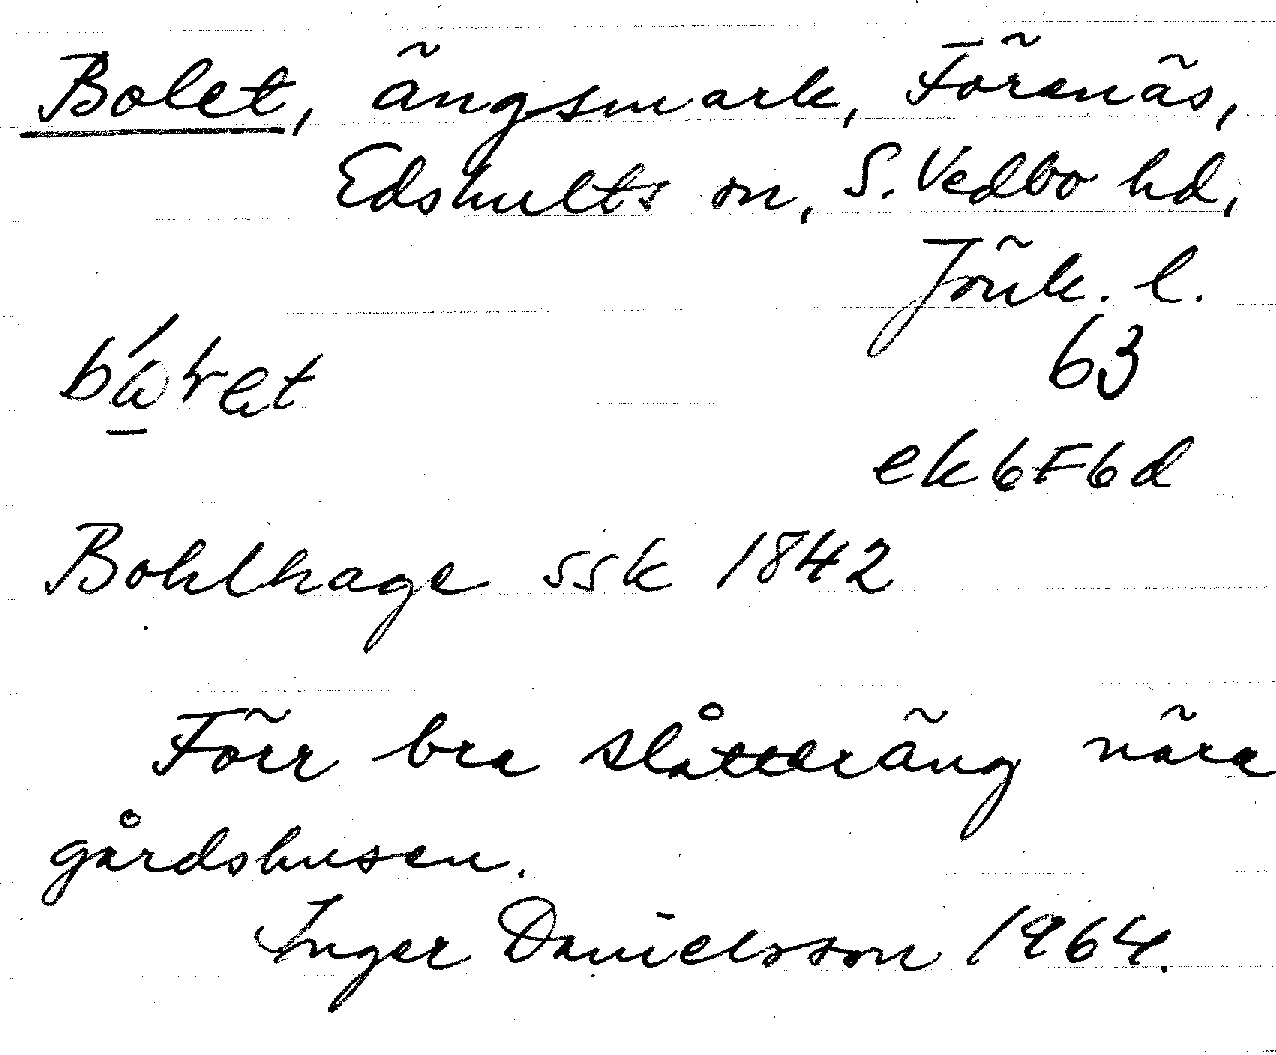 Bolet, ängsmark, Förenäs,
Edshults sn, S. Vedbo hd,
Jönk. l.
63
ek 6F6d
Bohlhage ssk 1842
Förr bra slåtteräng nära
gårdshusen.
Inger Danielsson 1964.